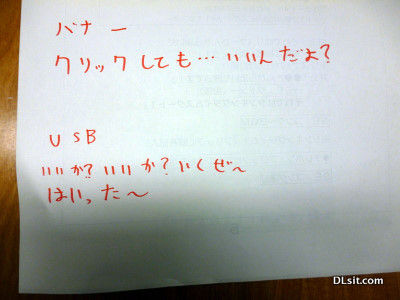 バナー
クリックしても…いいんだよ?
USB
いいか?いいか?いくぜ〜
はいった〜
DLsit.com